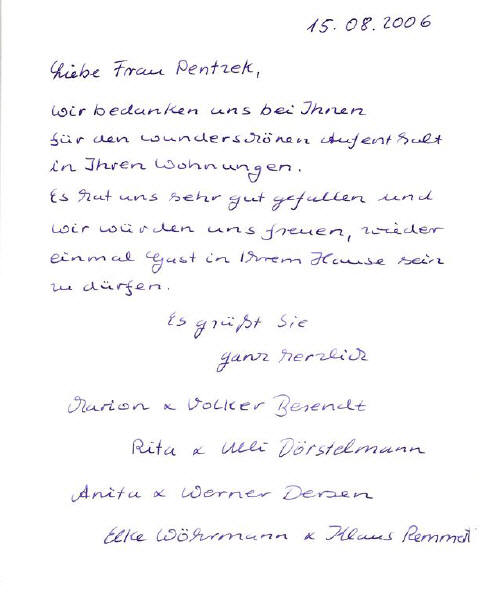 15.08.2006
Liebe Frau Pentzek,
wir bedanken uns bei Ihnen
für den wunderschönen Aufenthalt
in Ihren Wohnungen.
Es hat uns sehr gut gefallen und
wir würden uns freuen, wieder
einmal Gast in Ihrem Hause sein
zu dürfen.
Es grüßt Sie
ganz herzlich
Marion & Volker Berendt
Rita & Ulli Dörstelmann
Anita & Werner Dersen
Elke Wöhrmann & Klaus